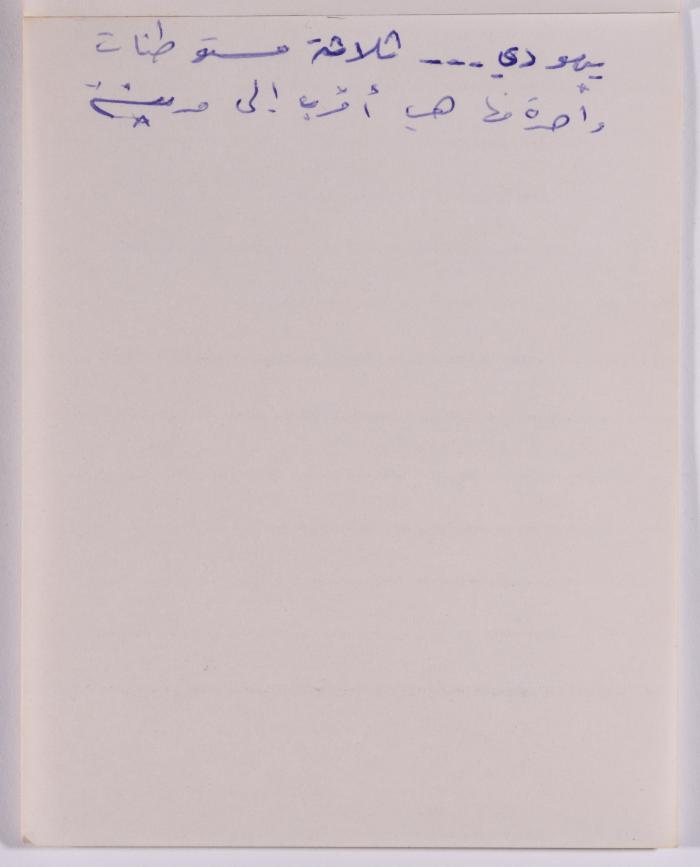 يهودي --- ثلاثة مستوطنات
واحدة منها هي أقرب إلى مدينة